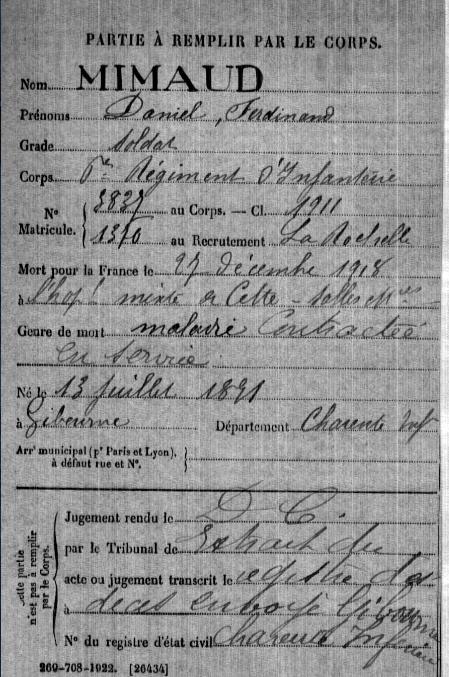 PARTIE À REMPLIR PAR LE CORPS.
Nom MIMAUD
Prénoms Daniel, Ferdinand
Grade Soldat
Corps 6e Régiment d'Infanterie
N° Matricule. { 3837 au Corps. — Cl. 1911
1370 au Recrutement La Rochelle
Mort pour la France le 27 décembre 1918
à l'hop! mixte de Cette - salles Mres
Genre de mort maladie contractée
en service
Né le 13 juillet 1891
à Gibourne Département Charente Infre
Arrt municipal (pr Paris et Lyon), à défaut rue et N°. }
cette partie n'est pas à remplir par le Corps.
Jugement rendu le D. C.
par le Tribunal de Extrait du
acte ou jugement transcrit le registre des
à décès envoyé Gibourne
N° du registre d'état civil Charente Inférieure
269-708-1922. [26434]